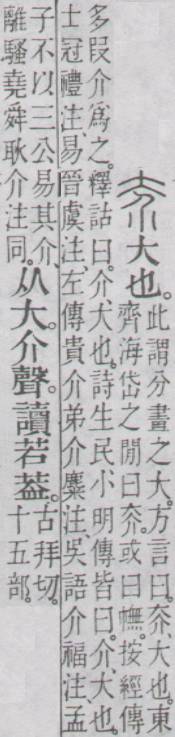 夰大也。此謂分畫之大。方言曰。夰、大也。東
齊海岱之閒曰夰。或曰幠。按經傳
多叚介爲之。釋詁曰。介、大也。詩生民小明傳皆曰。介、大也。
士冠禮注、易晉虞注、左傳貴介弟介麋注、吳語介福注、孟
子不以三公易其介、
離騷堯舜耿介注同。
从大。介聲。讀若葢。
古拜切。
十五部。